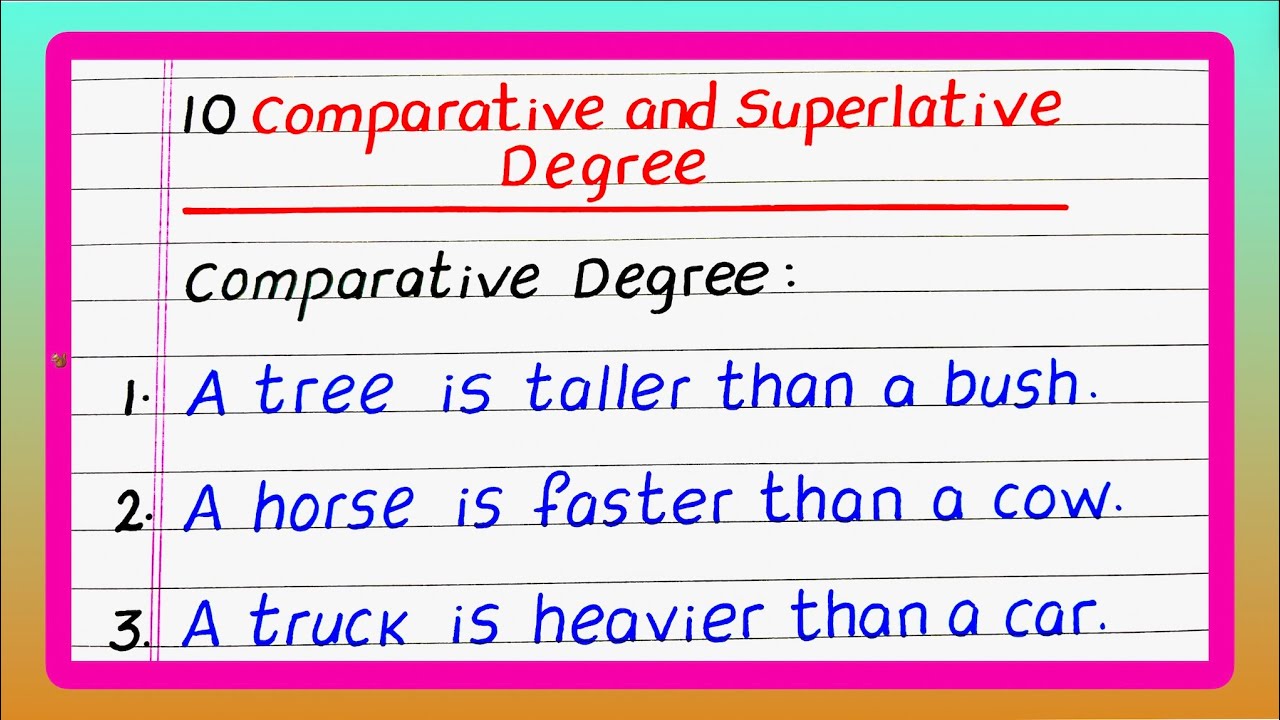 10 Comparative and Superlative
Degree
Comparative Degree:
1. A tree is taller than a bush.
2. A horse is faster than a cow.
3. A truck is heavier than a car.